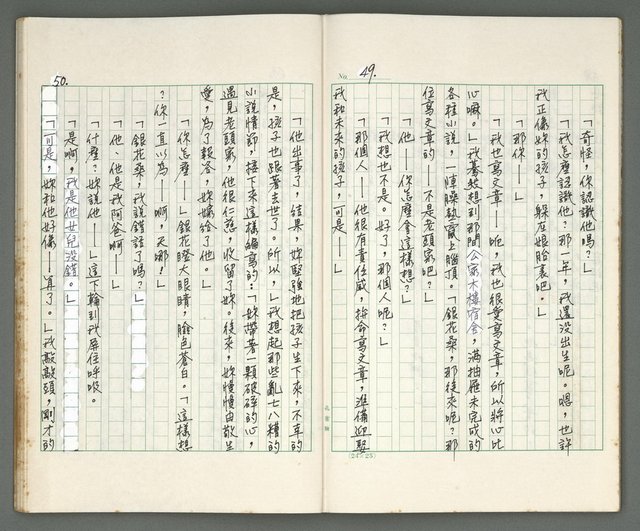 49.
No.
「奇怪，你認識他嗎？」
「我怎麼認識他？那一年，我還沒出生呢。嗯，也許
我正像妳的孩子，躲在娘胎裏吧。」
「那你——」
「我也寫文章——呃，我也很愛寫文章，所以將心比
心嘛。」我驀然想到那間公寓大樓宿舍，滿抽屜未完成的
各種小說，一陣臊熱竄上腦頂。「銀花桑，那後來呢？那
位寫文章的——不是老頭家吧？」
「他——你怎麼會這樣想？」
「我想也不是。好了，那個人呢？」
「那個人——他很有責任感，拚命寫文章，準備迎娶
我和未來的孩子，可是——」
(24×25)
50.
「他出事了，結果，妳堅強地把孩子生下來，不幸的
是，孩子也跟著去世了。所以，」我想起那些亂七八糟的
小說情節，接下來這樣編寫的：「妳帶著一顆破碎的心，
遇見老頭家，他很仁慈，收留了妳。後來，妳慢慢由敬生
愛，為了報答，妳嫁給了他。」
「你怎麼——」銀花瞪大眼睛，臉色蒼白。「這樣想
？你一直以為——啊，天哪！」
「銀花桑，我說錯話了嗎？」
「他、他是我阿爸啊——」
「什麼？妳說他——」這下輪到我屏住呼吸。
「是啊，我是他女兒沒錯。」
「可是，妳和他好像——算了。」我敲敲頭，剛才的